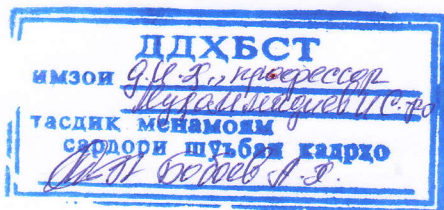 ДДҲБСТ
имзои д.и.х., профессор
Муҳаммадиев И.С. -ро
тасдиқ менамоям
сардори шуъбаи кадрҳо
Бобоев А.